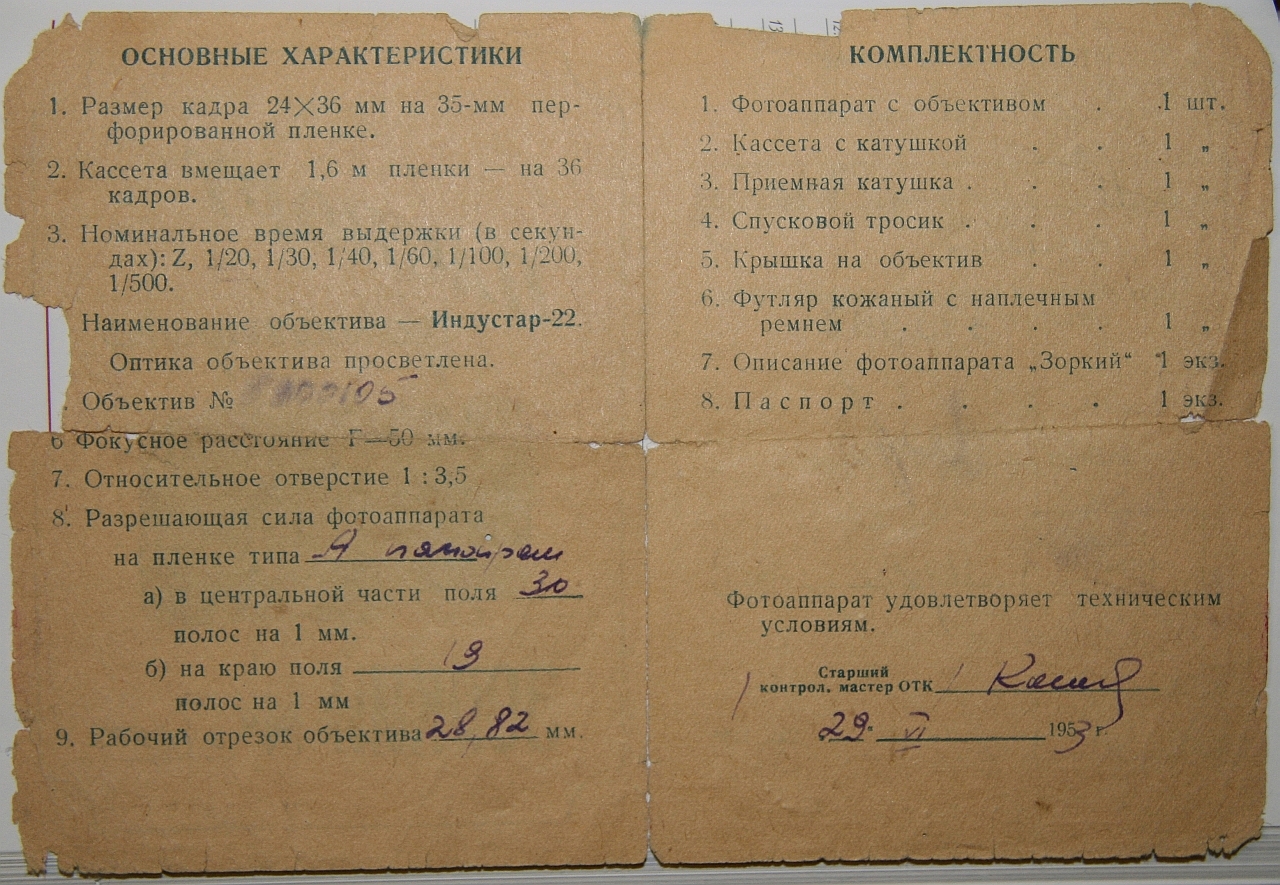 ОСНОВНЫЕ ХАРАКТЕРИСТИКИ
1. Размер кадра 24×36 мм на 35-мм пер-
форированной пленке.
2. Кассета вмещает 1,6 м пленки — на 36
кадров.
3. Номинальное время выдержки (в секун-
дах): Z, 1/20, 1/30, 1/40, 1/60, 1/100, 1/200,
1/500.
Наименование объектива — Индустар-22.
Оптика объектива просветлена.
Объектив №
6 Фокусное расстояние F—50 мм.
7. Относительное отверстие 1 : 3,5
8. Разрешающая сила фотоаппарата
на пленке типа А панхром
а) в центральной части поля 30
полос на 1 мм.
б) на краю поля 19
полос на 1 мм
9. Рабочий отрезок объектива 28,82 мм.
КОМПЛЕКТНОСТЬ
1. Фотоаппарат с объективом . . 1 шт.
2. Кассета с катушкой . . 1 „
3. Приемная катушка . . . 1 „
4. Спусковой тросик . . . 1 „
5. Крышка на объектив . . 1 „
6. Футляр кожаный с наплечным
ремнем . . . . 1 „
7. Описание фотоаппарата „Зоркий“ 1 экз.
8. Паспорт . . . . 1 экз.
Фотоаппарат удовлетворяет техническим
условиям.
Старший
контрол. мастер ОТК
29. VI 1953 г.